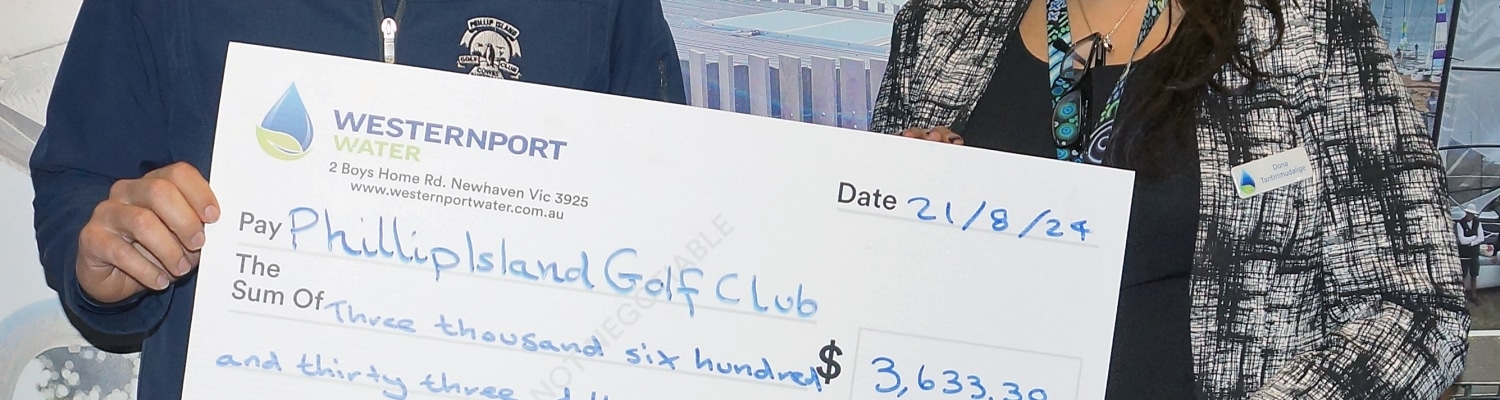 PHILLIP ISLAND
GOLF CLUB
COWES
WESTERNPORT
WATER
2 Boys Home Rd. Newhaven Vic 3925
www.westernportwater.com.au
Date 21/8/24
Pay Phillip Island Golf Club
The
Sum Of Three thousand six hundred
and thirty three
$ 3,633.30
NOT NEGOTIABLE
Dona
Tantirimudalige